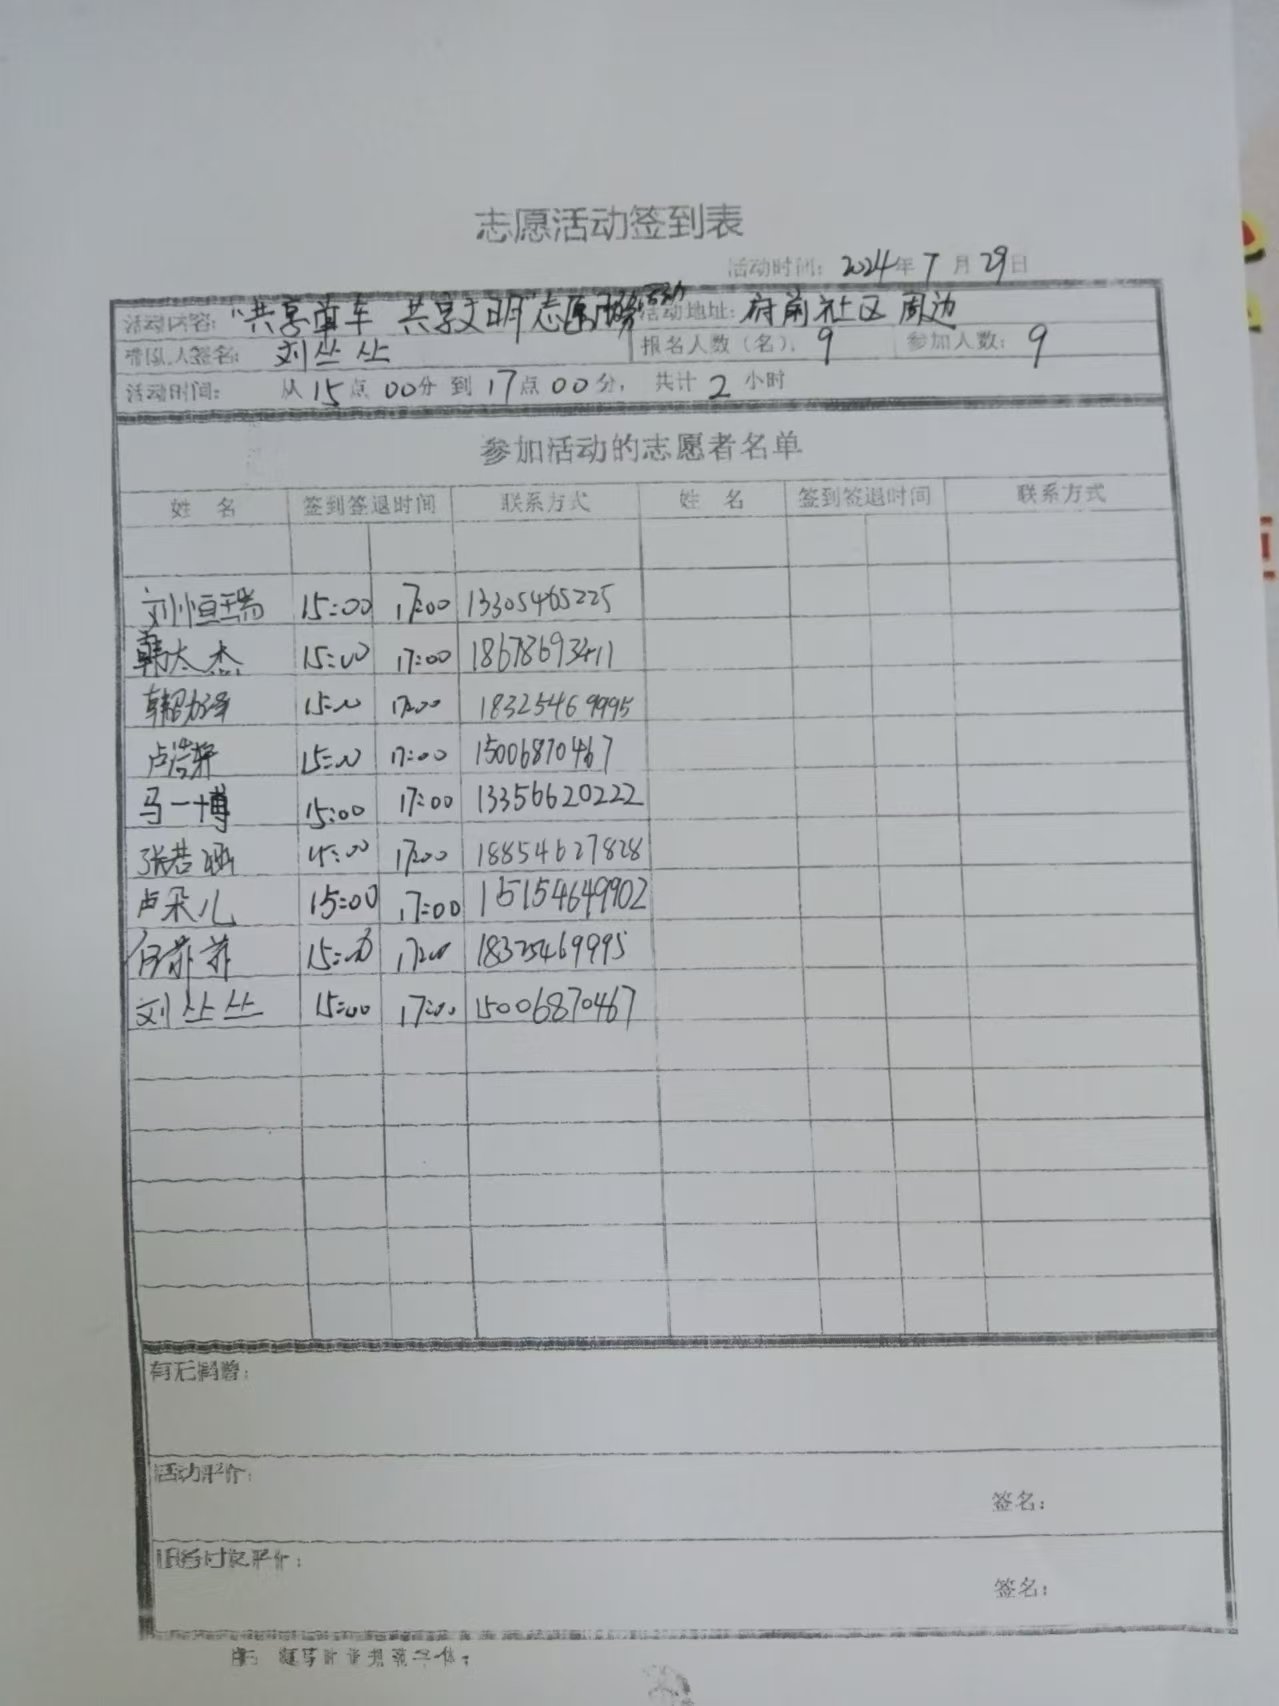 志愿活动签到表
活动时间：2024年7月29日
活动内容："共享单车 共享文明"志愿服务活动 活动地址：府前社区周边
带队人签名：刘丛丛 报名人数（名）：9 参加人数：9
活动时间： 从15点00分到17点00分， 共计2小时
参加活动的志愿者名单
姓 名 签到签退时间 联系方式 姓 名 签到签退时间 联系方式
刘恒瑞 15:00 17:00 13305465225
韩太杰 15:00 17:00 18678693411
15:00 17:00 18325469995
卢浩轩 15:00 17:00 15006870467
马一博 15:00 17:00 13356620222
张若涵 15:00 17:00 18854627828
卢朵儿 15:00 17:00 15154649902
15:00 17:00 18325469995
刘丛丛 15:00 17:00 15006870467
有无捐赠：
活动评价：
签名：
签名：